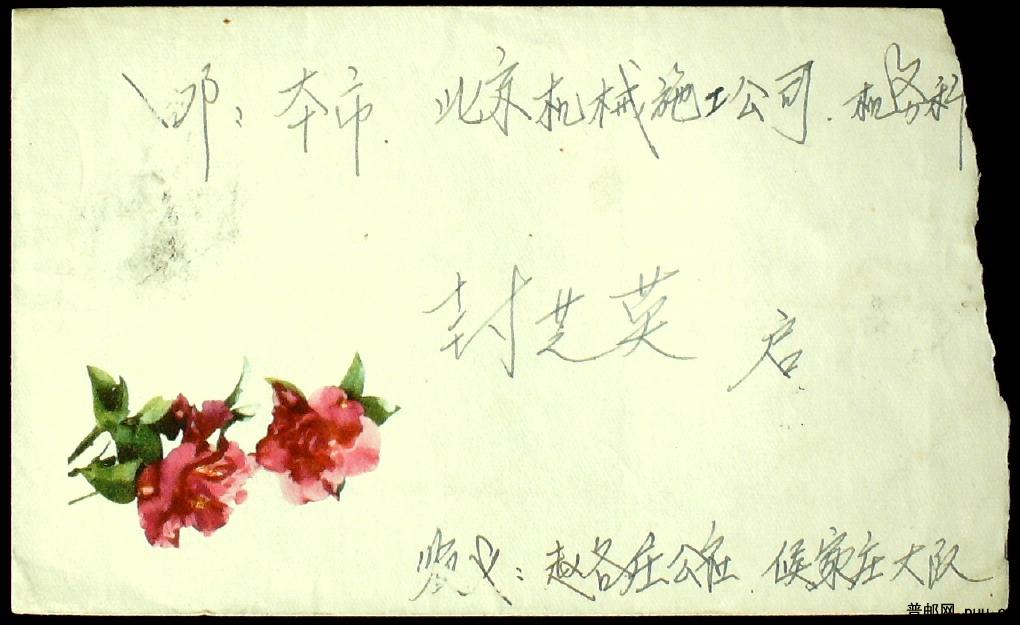 邮：本市 北京机械施工公司．机务科
封芝英 启
赵各庄公社 侯家庄大队
普邮网